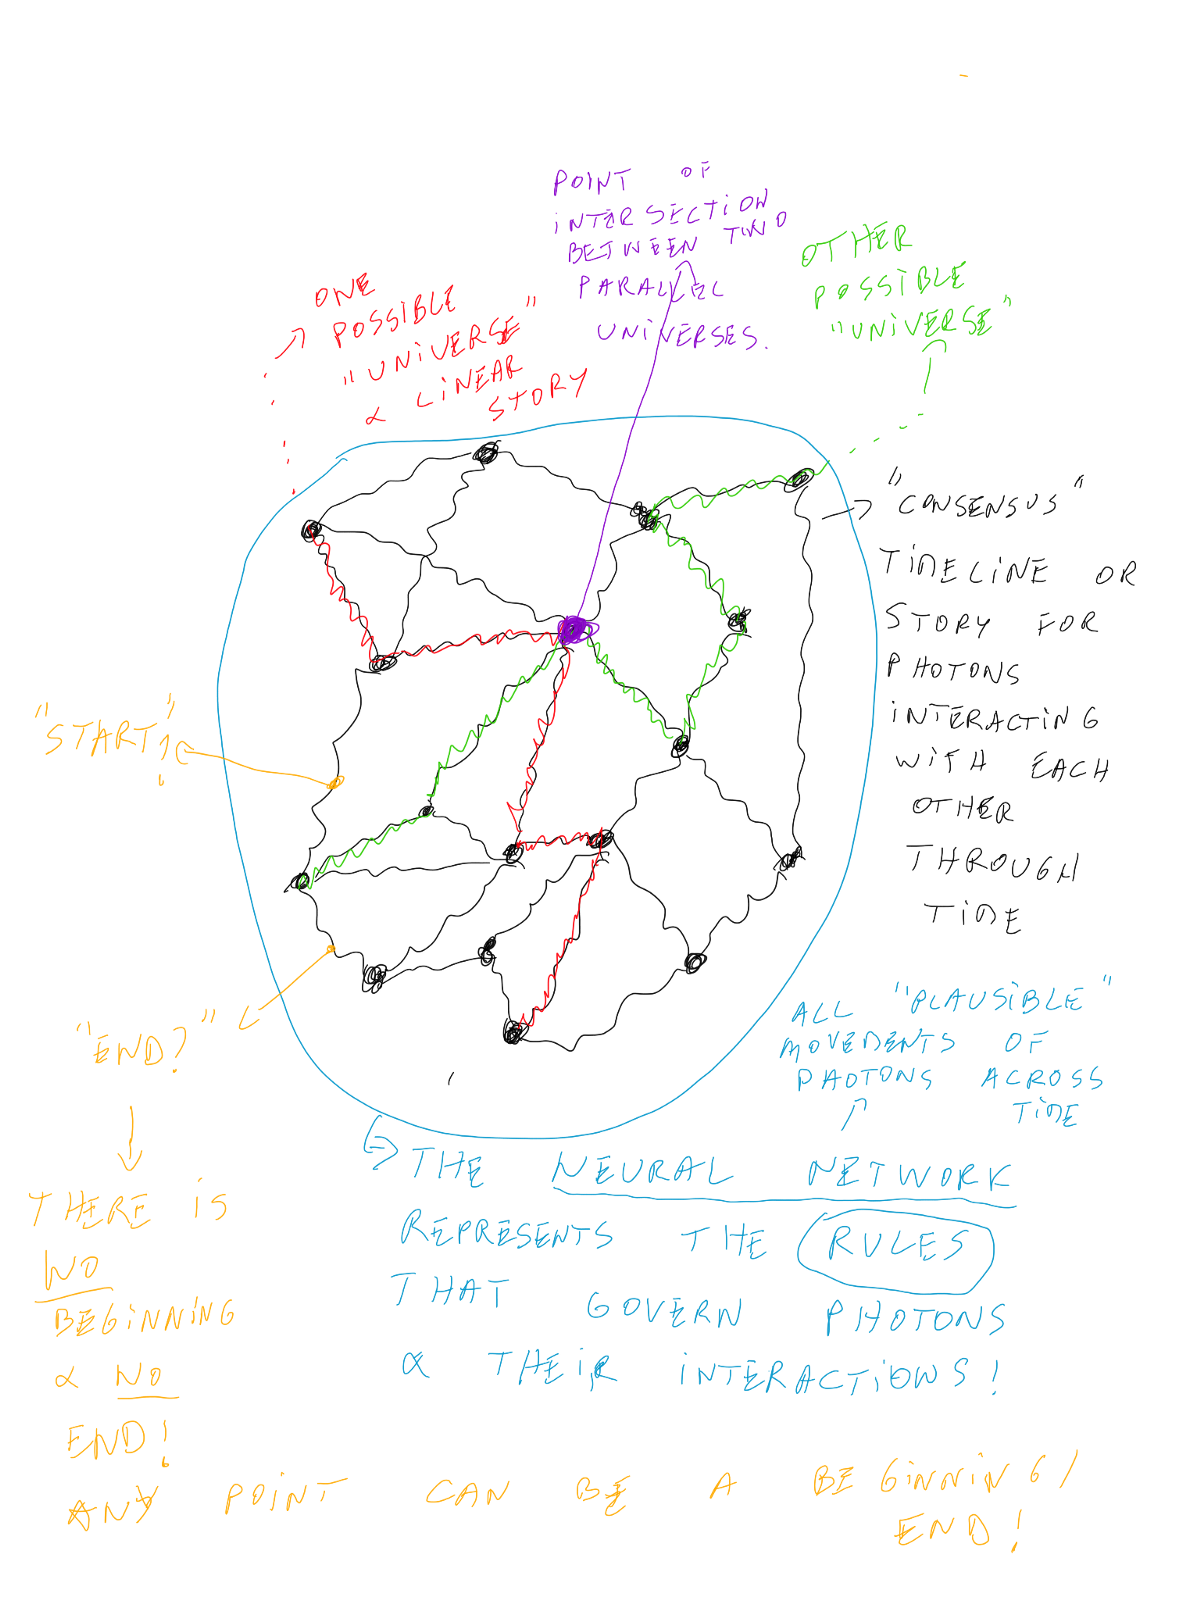 POINT OF
INTERSECTION
BETWEEN TWO
PARALLEL
UNIVERSES.
ONE
POSSIBLE
"UNIVERSE"
& LINEAR
STORY
OTHER
POSSIBLE
"UNIVERSE"
"CONSENSUS"
TIMELINE OR
STORY FOR
PHOTONS
INTERACTING
WITH EACH
OTHER
THROUGH
TIME
"START?"
"END?"
THERE IS
NO
BEGINNING
& NO
END!
ANY POINT CAN BE A BEGINNING/
END!
ALL "PLAUSIBLE"
MOVEMENTS OF
PHOTONS ACROSS
TIME
THE NEURAL NETWORK
REPRESENTS THE RULES
THAT GOVERN PHOTONS
& THEIR INTERACTIONS!